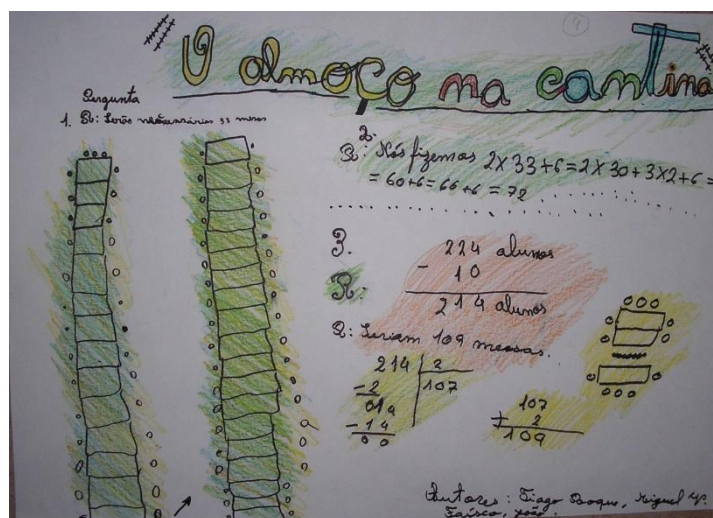 O almoço na cantina
Pergunta
1. R: Serão necessárias 33 mesas
2.
R: Nós fizemos 2x33+6=2x30+3x2+6=
=60+6=66+6=72
3. 224 alunos
- 10
R: 214 alunos
R: Seriam 109 messas.
214 2
-2 107
014
-14
00
107
+ 2
109
Autores: Tiago Roque, Miguel
Faísca, João.